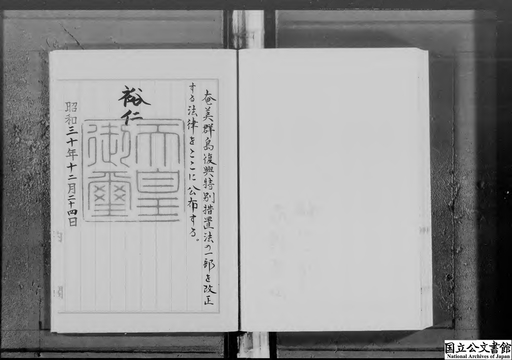 奄美群島復興特別措置法の一部を改正
する法律をここに公布する。
裕仁
天皇
御璽
昭和三十年十二月二十四日
国立公文書館
National Archives of Japan